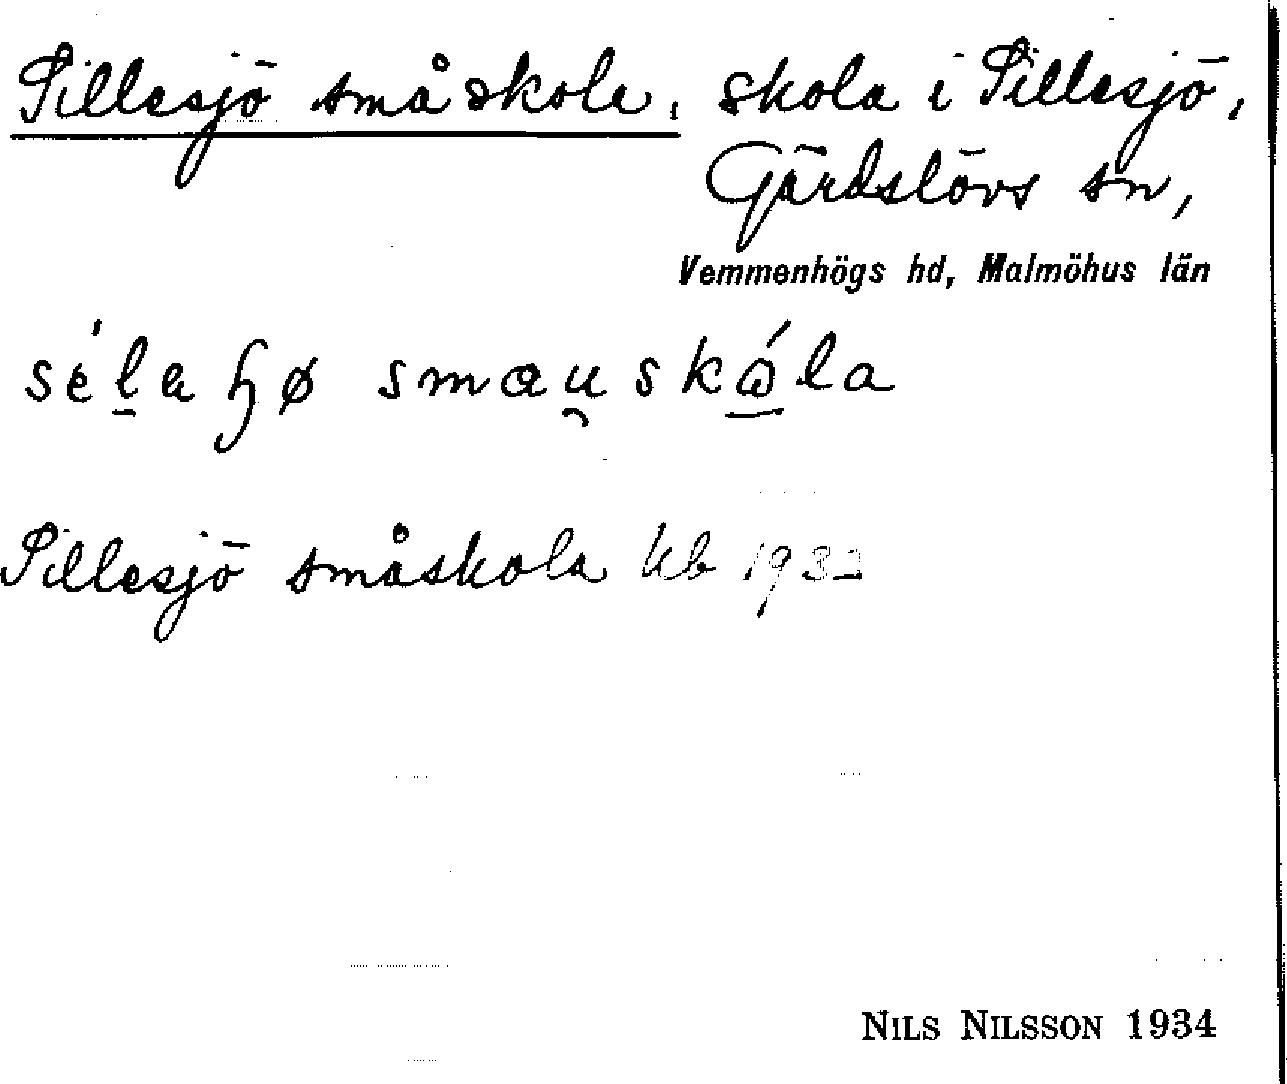 Sillesjö småskola, skola i Sillesjö,
Gärdslövs sn,
Vemmenhögs hd, Malmöhus län
Sillesjö småskola kb 1932
NILS NILSSON 1934